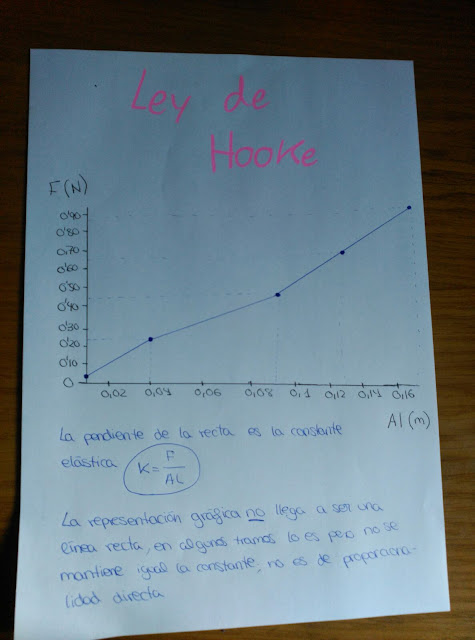 Ley de
Hooke
F(N)
0'90
0'80
0'70
0'60
0'50
0'40
0'30
0'20
0'10
0
0,02 0,04 0,06 0,08 0,1 0,12 0,14 0,16
Al (m)
La pendiente de la recta es la constante
elástica K = F / AL
La representación gráfica no llega a ser una
línea recta, en algunos tramos lo es pero no se
mantiene igual la constante, no es de proporciona-
lidad directa